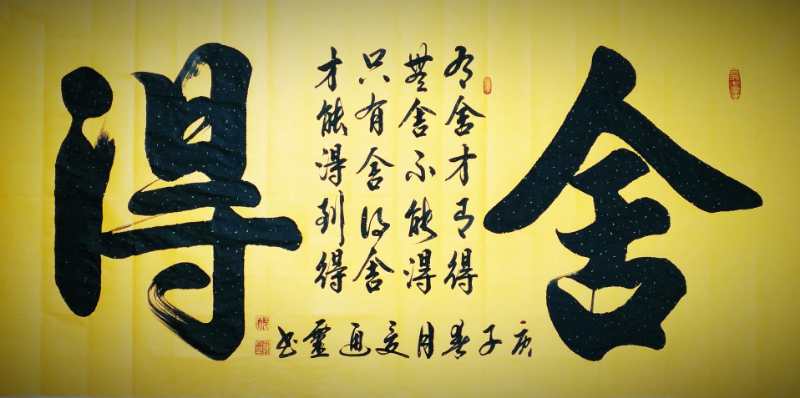 舍
有舍才有得
無舍不能得
只有舍得舍
才能得到得
得
庚子春月通靈书